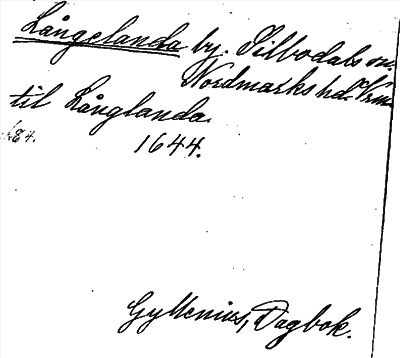 Långelanda by. Silbodals sn.
Nordmarks hd. Vrm.
til Långlanda.
1644.
Gyllenius, Dagbok.